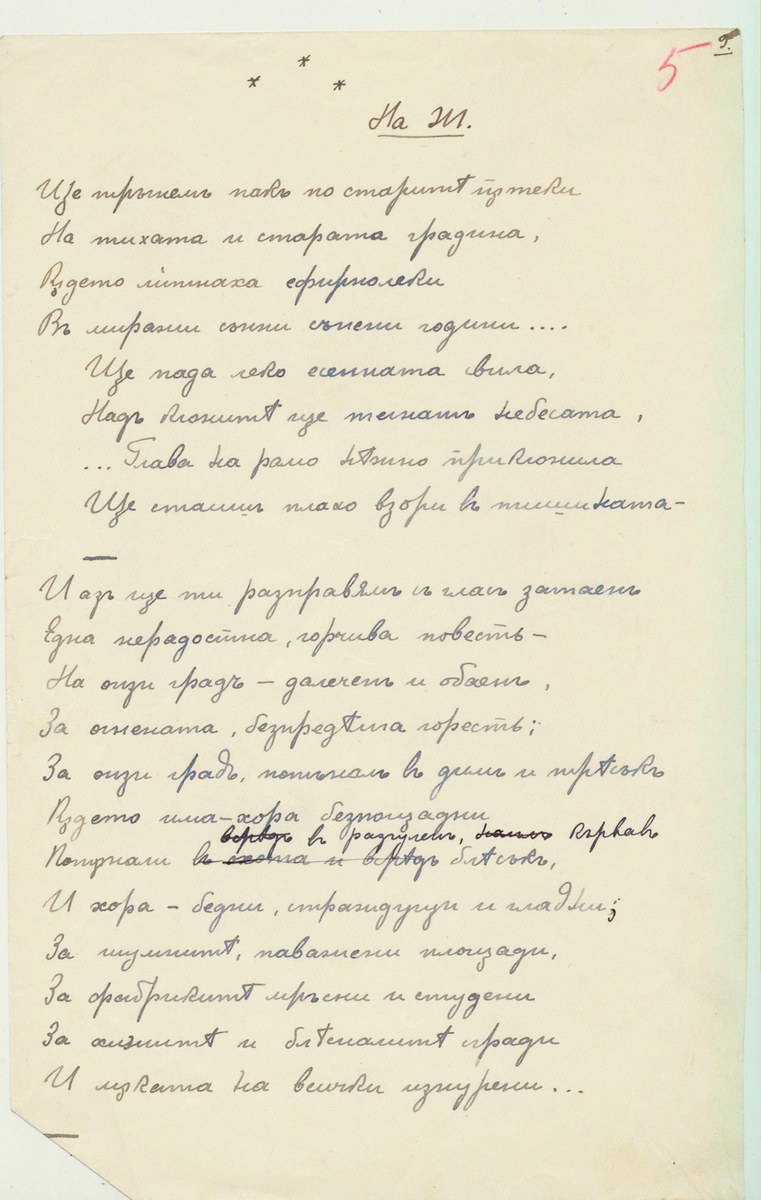 * * *
5
9.
На Ж.
Ще тръгнемъ пакъ по старитѣ пѫтеки
На тихата и старата градина,
Кѫдето литнаха ефирнолеки
Въ миражни сънни сънени години....
Ще пада леко есенната свила,
Надъ клонитѣ ще тегнатъ небесата,
...Глава на рамо нѣжно приклонила
Ще сташъ плахо взори въ тишината-
И азъ ще ти разправямъ съ гласъ затаенъ
Една нерадостна, горчива повесть-
На онзи градъ - далеченъ и обаенъ,
За огнената, безпредѣлна горесть;
За онзи градъ, потъналъ въ димъ и трѣсъкъ
Кѫдето има-хора безпощадни
въ разгуленъ, кървавъ
Потънали въ охота и врѣдъ блѣсъкъ,
И хора - бедни, страждущи и гладни;
За шумнитѣ, паважени площади,
За фабрикитѣ мръсни и студени
За хижитѣ и блѣсналитѣ сгради
И мѫката на всички изнурени...